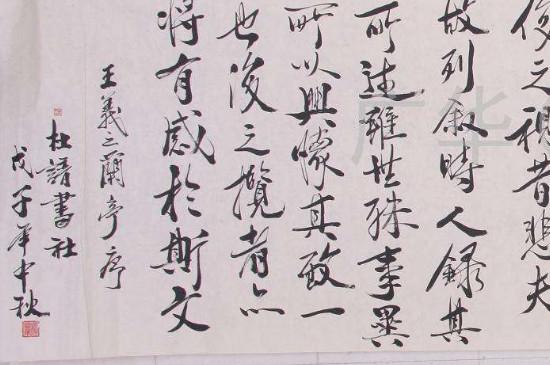 後之視昔悲夫
故列叙時人錄其
所述雖世殊事異
所以興懷其致一
也後之攬者亦
將有感於斯文
王羲之蘭亭序
杜書社
戊子年中秋